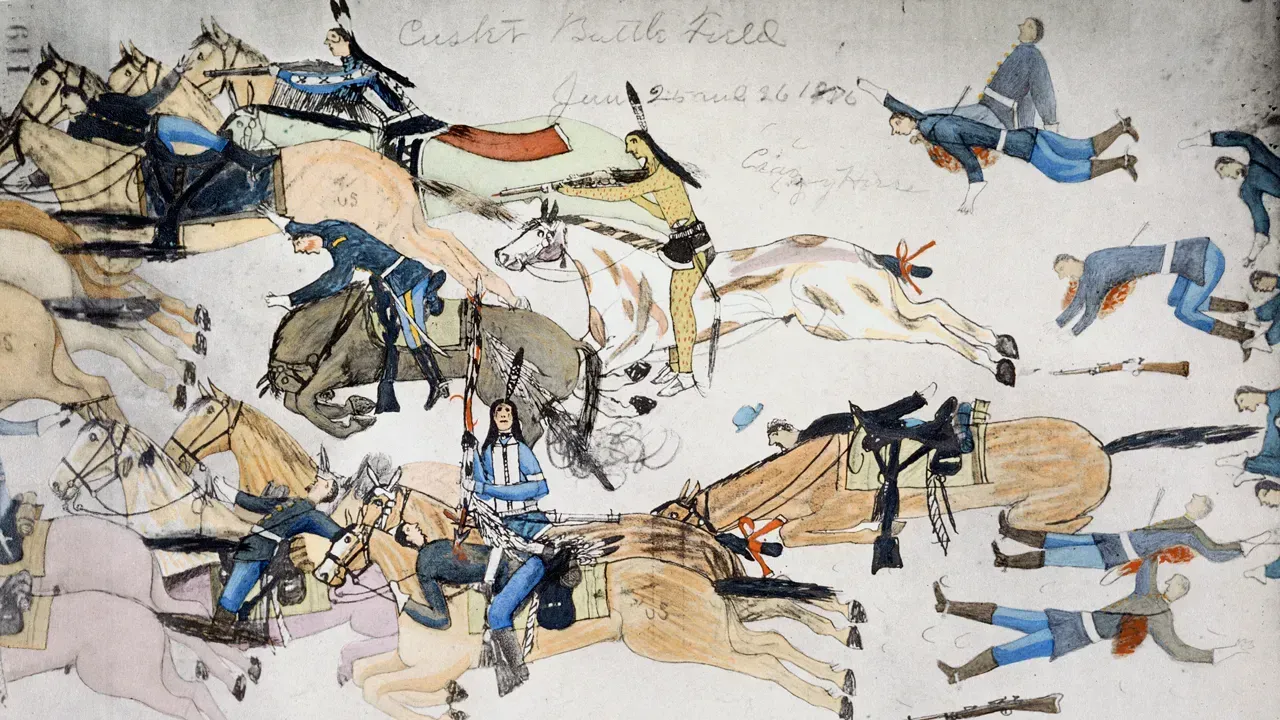 119
Custer Battle Field
June 25 and 26 1876
Crazy Horse
US
US
S